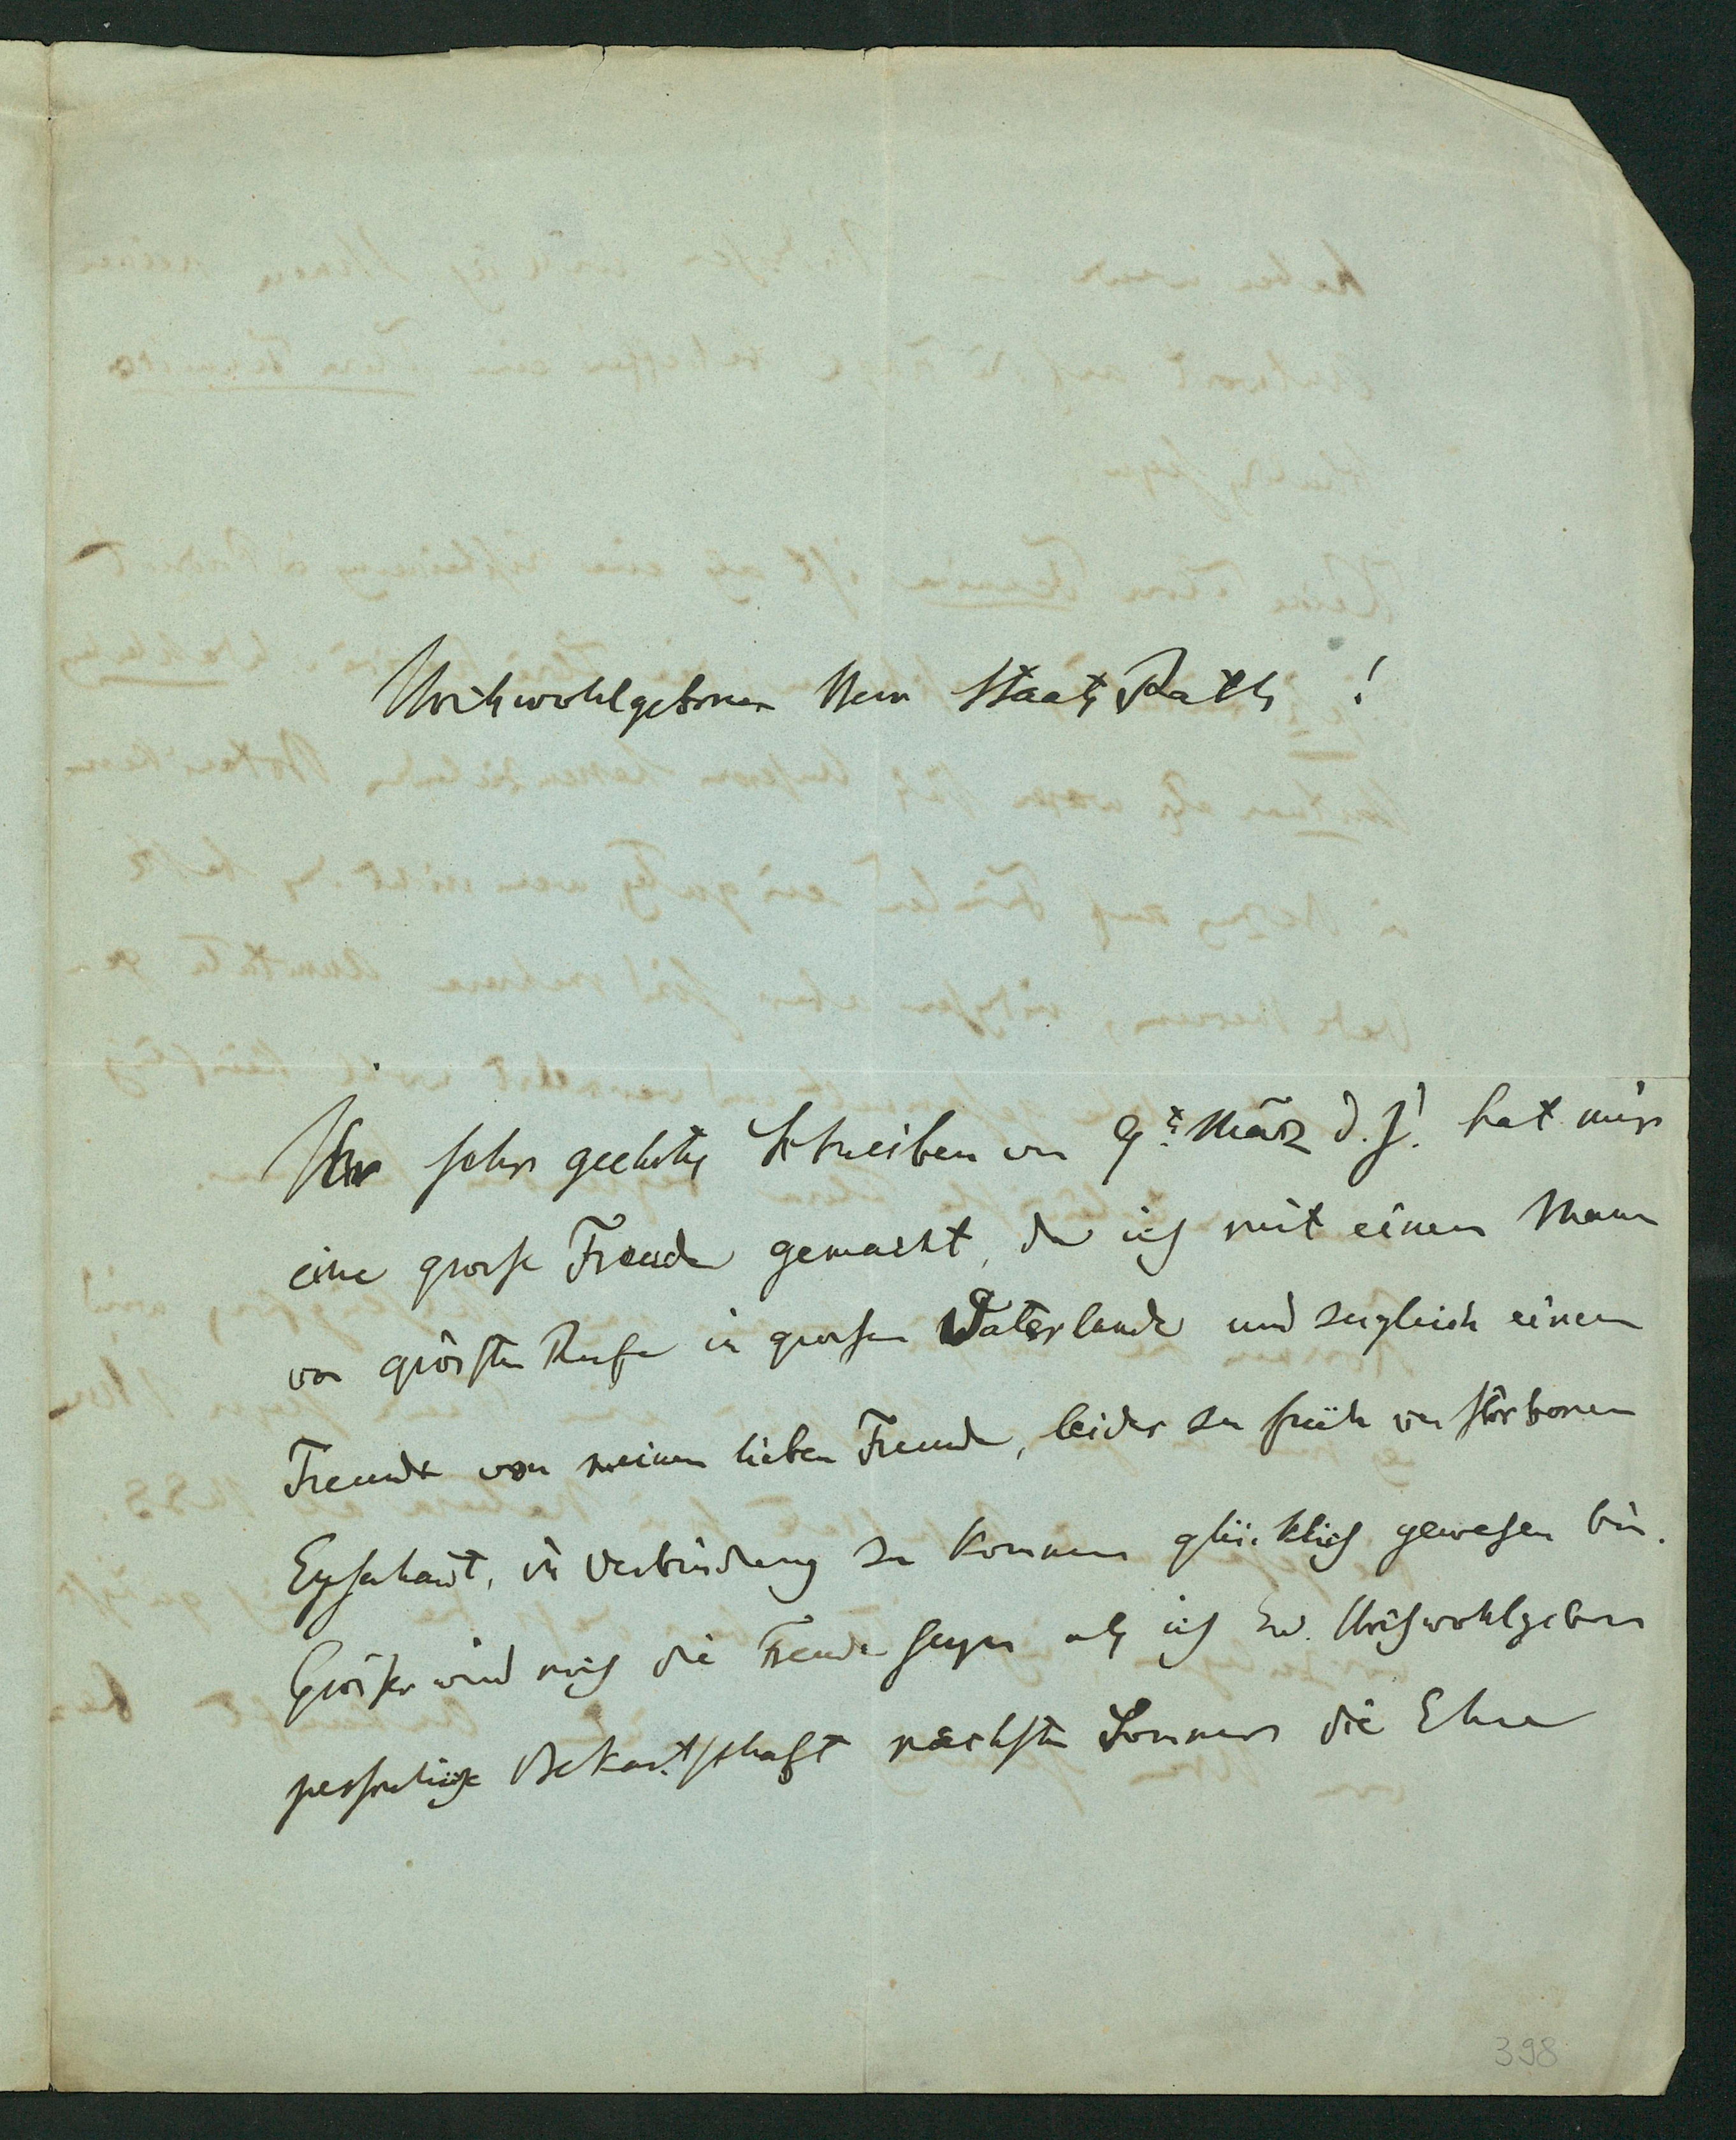 Hochwohlgeborner Herr Staats Rath !
Ihr sehr geehrtes Schreiben von 9t März d. J. hat mir
eine grosse Freude gemacht, da ich mit einem Mann
von grösten Rufe in grossen Vaterlande und zugleich einem
Freunde von meinem lieben Freunde, leider zu früh verstorbenen
in Verbindung zu kommen glücklich gewesen bin.
Grösser wird noch die Freude seyn als ich Ew. Hochwohlgeboren
persönliche Bekantschaft nächsten Sommer die Ehre
398